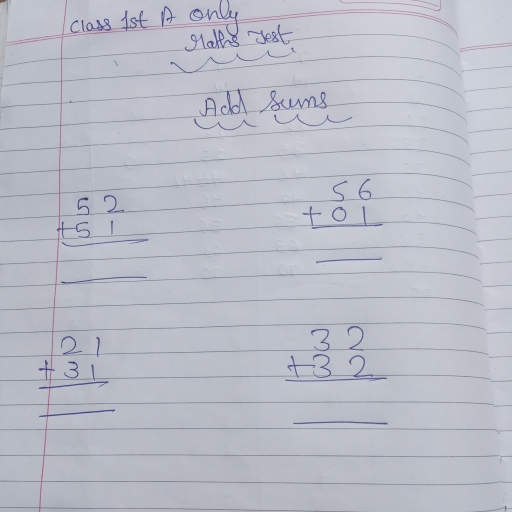 Class 1st A only
Maths Test
Add Sums
52
+51
56
+01
21
+31
32
+32